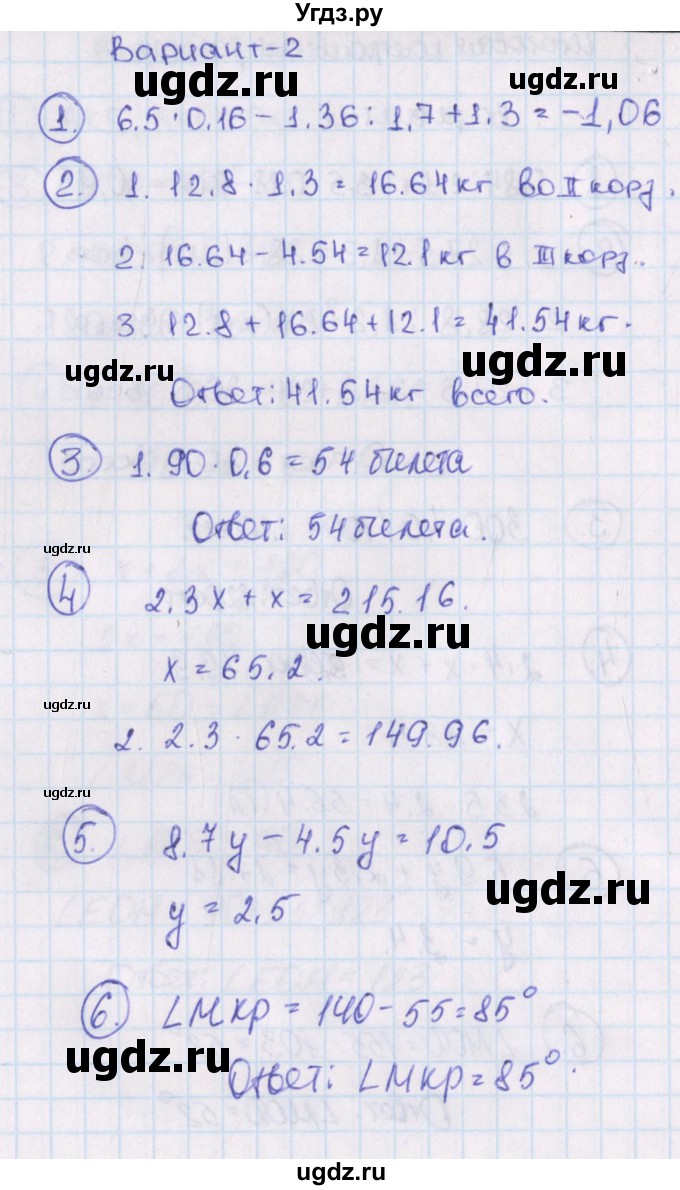 Угдз.ру
Вариант-2
ugdz.ru ugdz.ru
1. 6.5 · 0.16 - 1.36 : 1,7 + 1.3 = -1,06
2. 1. 12.8 · 1.3 = 16.64 кг во II корз.
2. 16.64 - 4.54 = 12.1 кг в III корз.
3. 12.8 + 16.64 + 12.1 = 41.54 кг.
ugdz.ru ugdz.ru
Ответ: 41.54 кг всего.
3. 1. 90 · 0,6 = 54 билета
Ответ: 54 билета.
ugdz.ru
4 2.3x + x = 215.16.
ugdz.ru
x = 65.2.
ugdz.ru
2. 2.3 · 65.2 = 149.96.
ugdz.ru
5. 8.7y - 4.5y = 10.5
ugdz.ru
y = 2.5
6. ∠MKP = 140 - 55 = 85°
ugdz.ru
Ответ: ∠MKP = 85°.
ugdz.ru